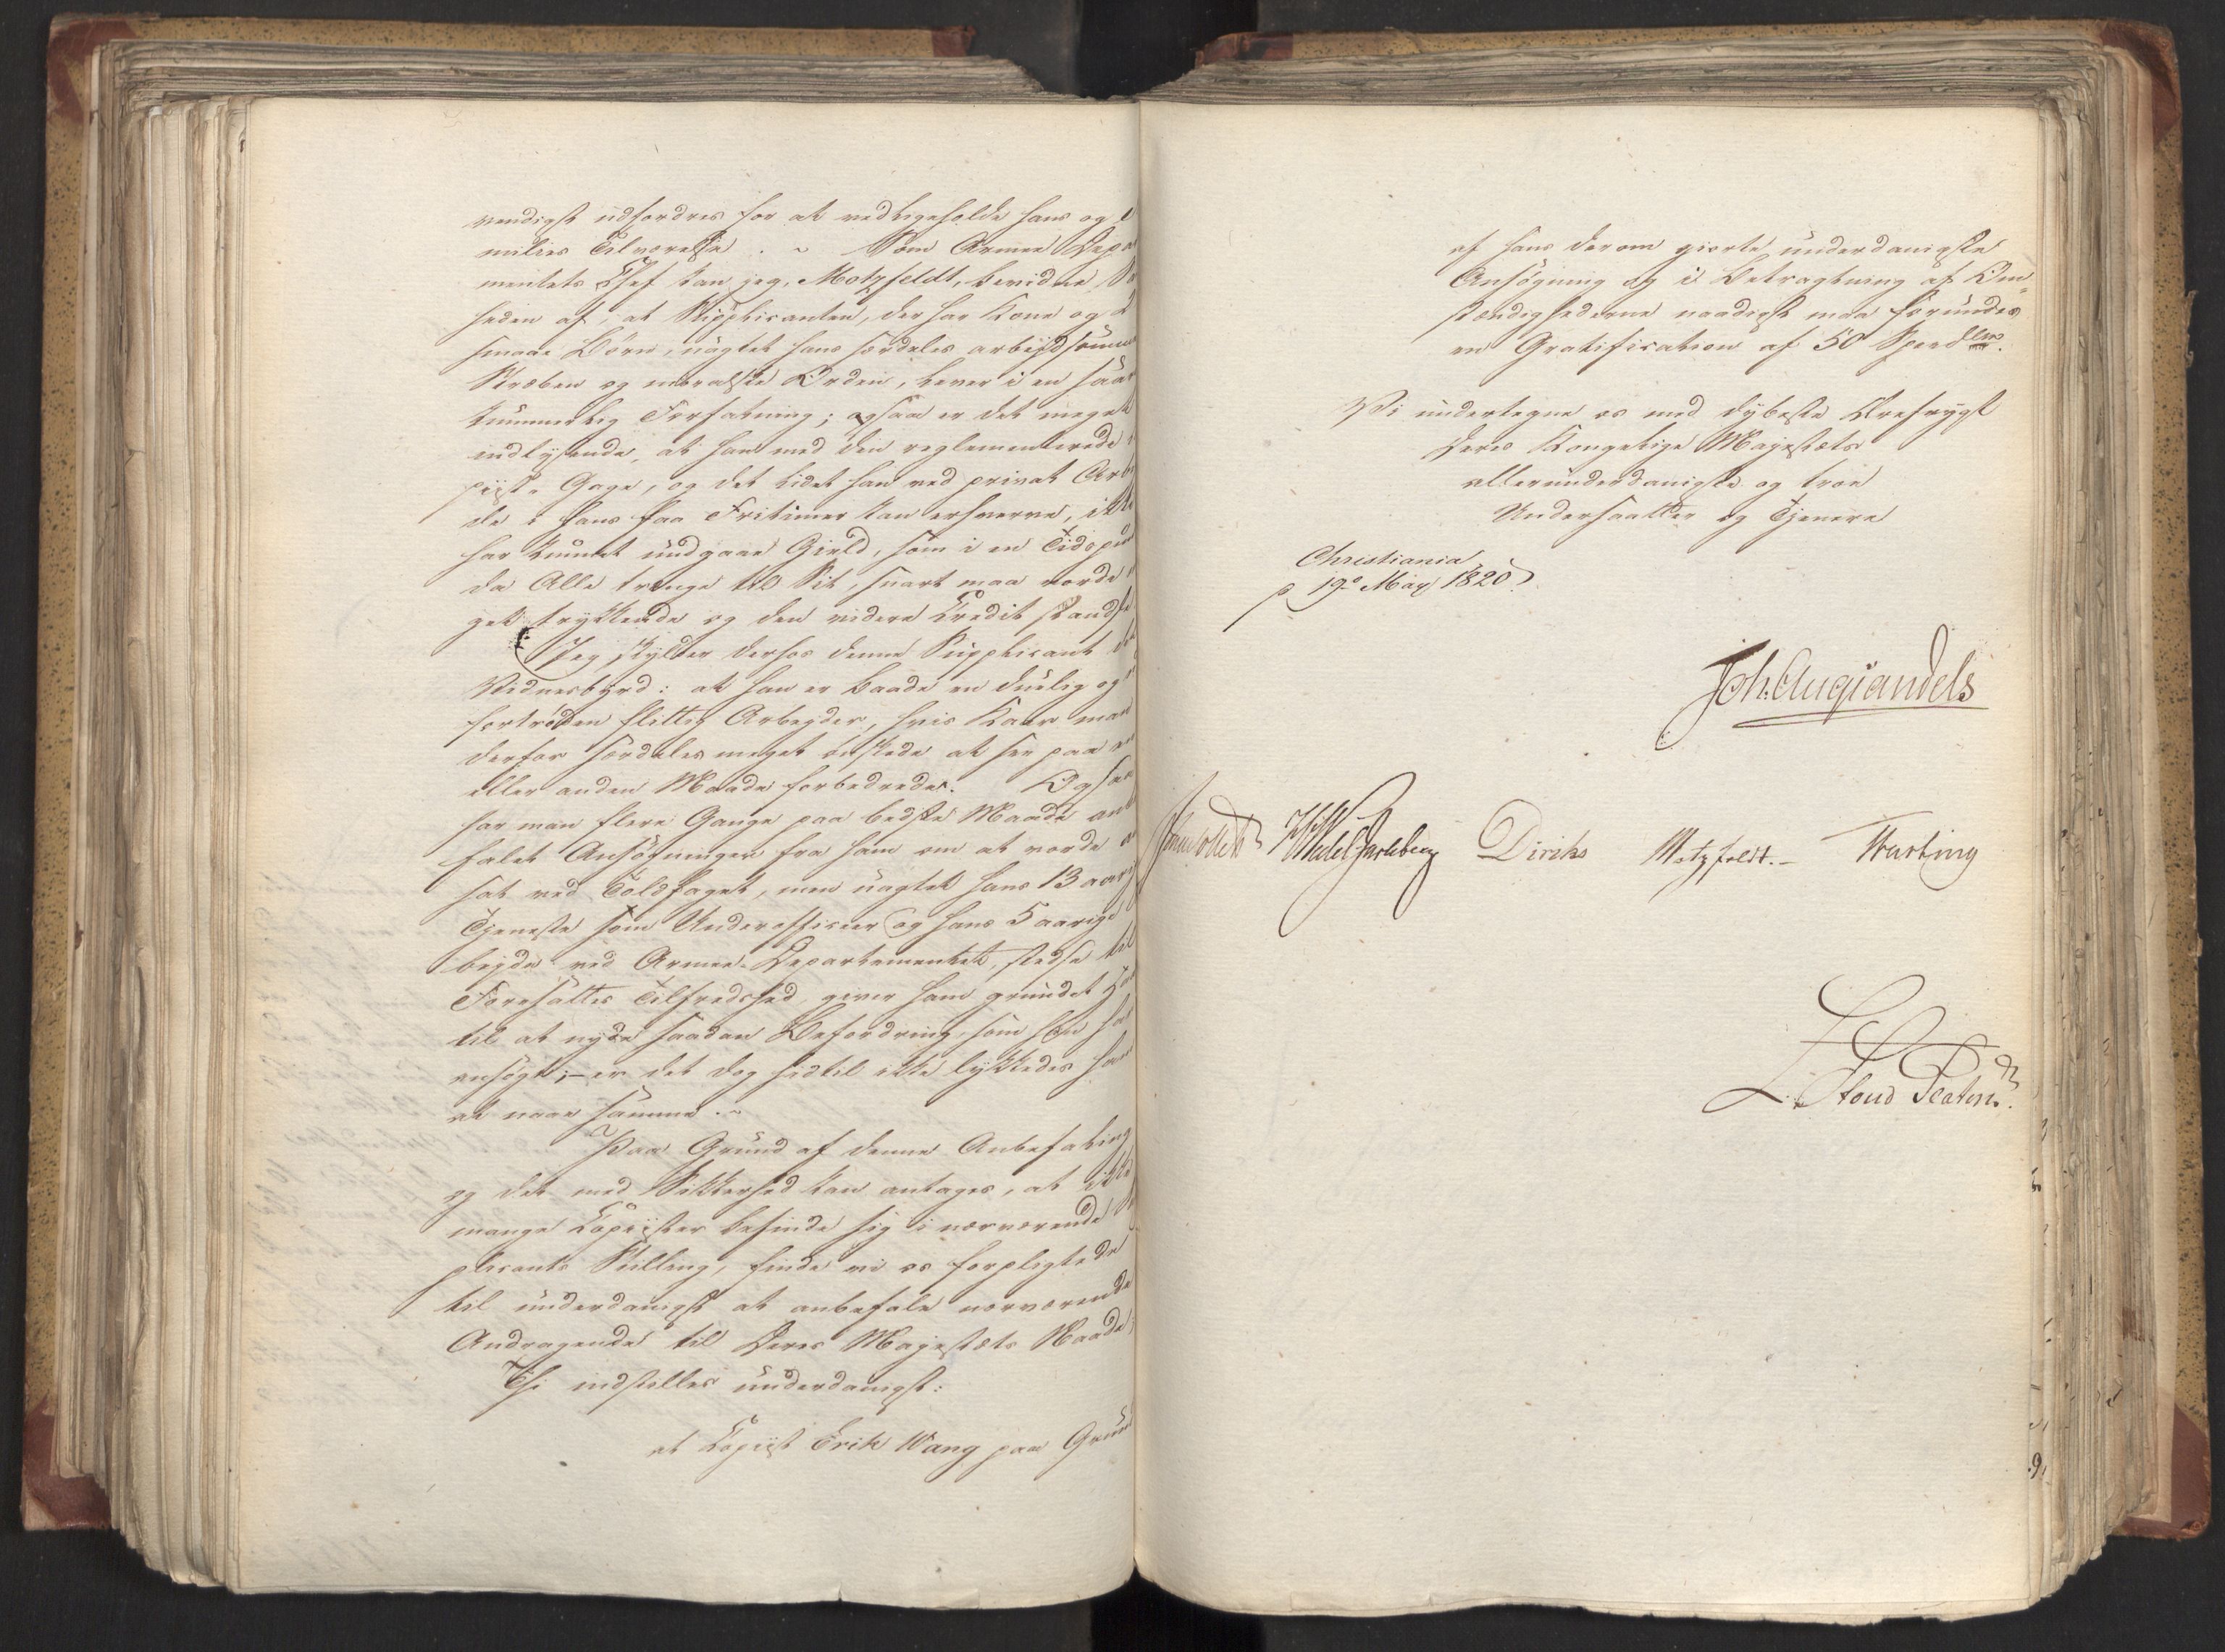 vendigst udfordres for at vedligeholde hans og
milies Tilværelse. ~ Som Armee Depa
mentets Chef kan jeg, Motzfeldt, bevidne
heden af, at Supplicanten, der har Kone og 2
smaae Børn, uagtet hans særdeles arbejdsomme
Stræben og moralske Orden, lever i en saare
kummerlig Forfatning; ogsaa er det meget
indlysende, at han med den reglementerede
piist-Gage, og det lidet han ved privat Arb
de i hans faa Fritimer kan erhverve, ikke
har kunnet undgaae Gield, som i en Tidspun
da Alle trenge til Sit, snart maa vorde
get trykkende og den videre Credit standse
Jeg skylder derhos denne Supplicant det
Vidnesbyrd: at han er baade en duelig og
fortrøden flittig Arbeyder, hvis Kaar man
derfor særdeles meget ønskede at see paa en
eller anden Maade forbedrede. Ogsaa
har man flere Gange paa bedste Maade anb
falet Ansøgninger fra ham om at vorde
sat ved Toldfaget, men uagtet hans 13 aarig
Tjeneste som Underofficeer og hans 5 aarige
beyde ved Armee-Departementet, stedse til
Foresattes Tilfredshed, giver ham grundet
til at nyde saadan Befordring, som han har
ansøgt; – er det dog hidtil ikke lykkedes ham
at naae samme. ~
Paa Grund af denne Anbefaling
og det med Sikkerhed kan antages, at ikke
mange Copiister befinde sig i nærværende
plicants Stilling, finde vi os forpligtede
til underdanigst at anbefale nærværende
Andragende til Deres Majestæts Naade;
Thi indstilles underdanigst:
at Copiist Erik Wang paa Grund
af hans derom giorte underdanigste
Ansøgning og i Betragtning af Om-
stændighederne naadigst maa forundes
en Gratification af 50 Specdlr.
Vi undertegne os med dybeste Ærefrygt
Deres Kongelige Majestæts
allerunderdanigste og troe
Undersaatter og Tjenere
Christiania
p 19de May 1820.
Joh. Aug. Sandels
JCollett HWedel Jarlsberg Diriks Motzfeldt. – Krefting
L. Stoud Platou